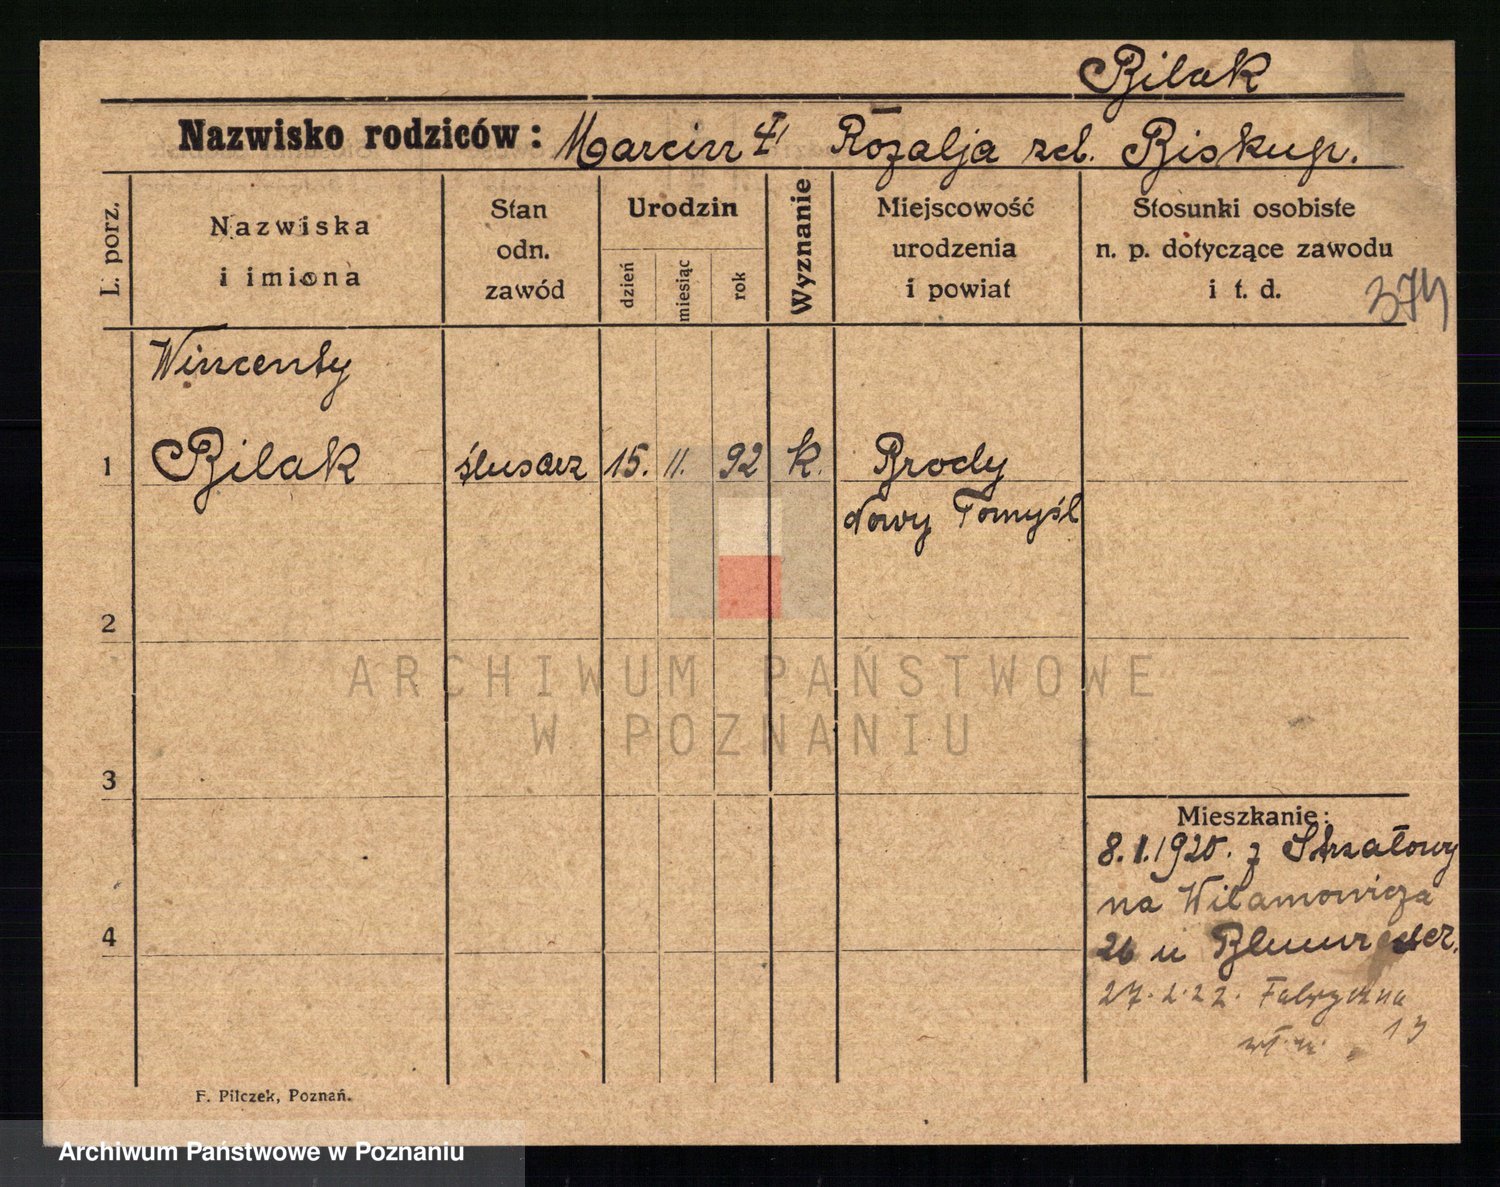 Bilak
Nazwisko rodziców: Marcin Rozalja zd. Biskup.
L. porz.
Nazwiska
i imiona
Stan
odn.
zawód
Urodzin
dzień
miesiąc
rok
Wyznanie
Miejscowość
urodzenia
i powiat
Stosunki osobiste
n. p. dotyczące zawodu
i t. d.
Wincenty
1 Bilak ślusarz 15. 11. 92 k. Brody
Nowy Tomyśl
2
3
4
Mieszkanie:
8.1.1920. z Strzałowy
na Wilamowicza
26 u
27.2.22. Fabryczna
13
F. Pilczek, Poznań.
ARCHIWUM PAŃSTWOWE
W POZNANIU
Archiwum Państwowe w Poznaniu